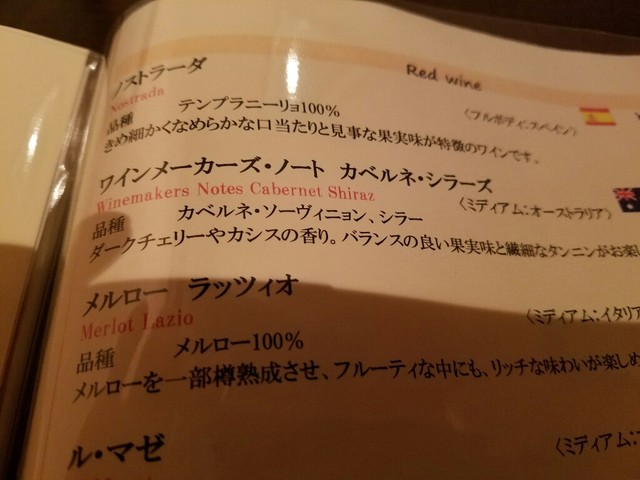 Red wine
ノストラーダ
Nostrada
〈フルボディ:スペイン〉
品種 テンプラニーリョ100%
きめ細かくなめらかな口当たりと見事な果実味が特徴のワインです。
ワインメーカーズ・ノート カベルネ・シラーズ
Winemakers Notes Cabernet Shiraz
〈ミディアム:オーストラリア〉
品種 カベルネ・ソーヴィニョン、シラー
ダークチェリーやカシスの香り。バランスの良い果実味と繊細なタンニンがお楽し
メルロー ラッツィオ
Merlot Lazio
〈ミディアム:イタリア
品種 メルロー100%
メルローを一部樽熟成させ、フルーティな中にも、リッチな味わいが楽しめ
ル・マゼ
〈ミディアム: